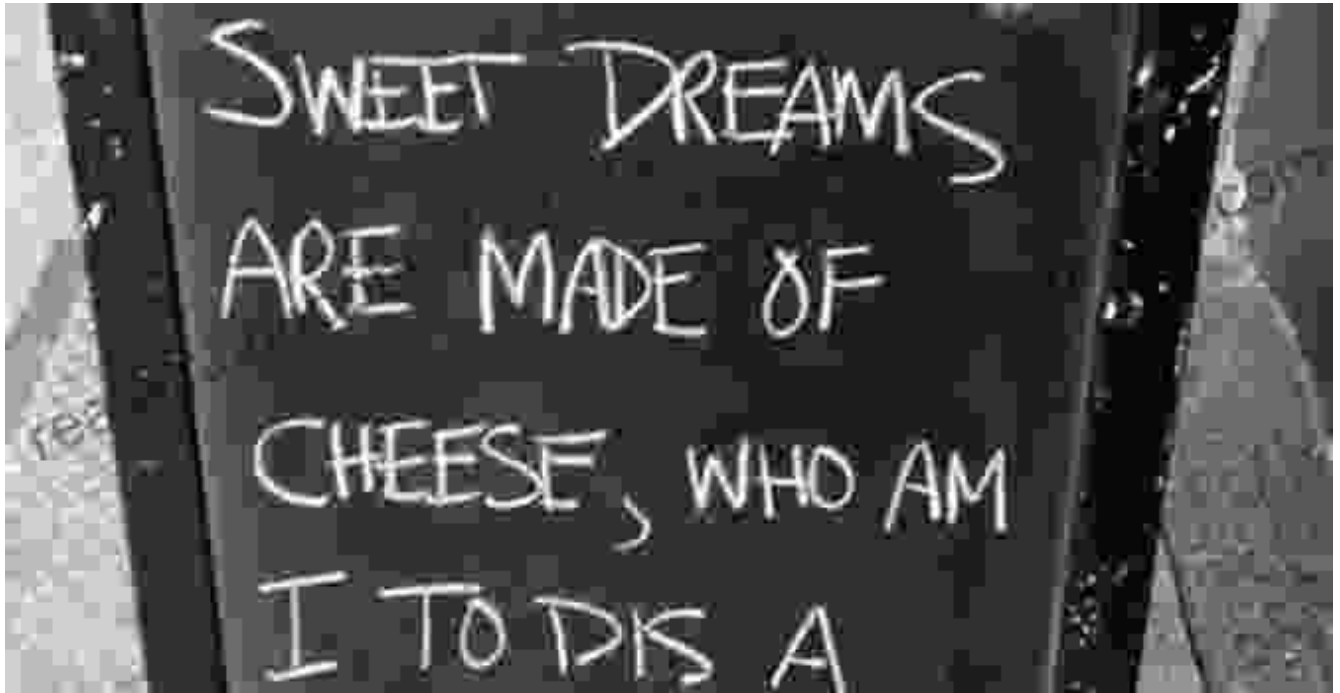 SWEET DREAMS
ARE MADE OF
CHEESE, WHO AM
I TO DIS A